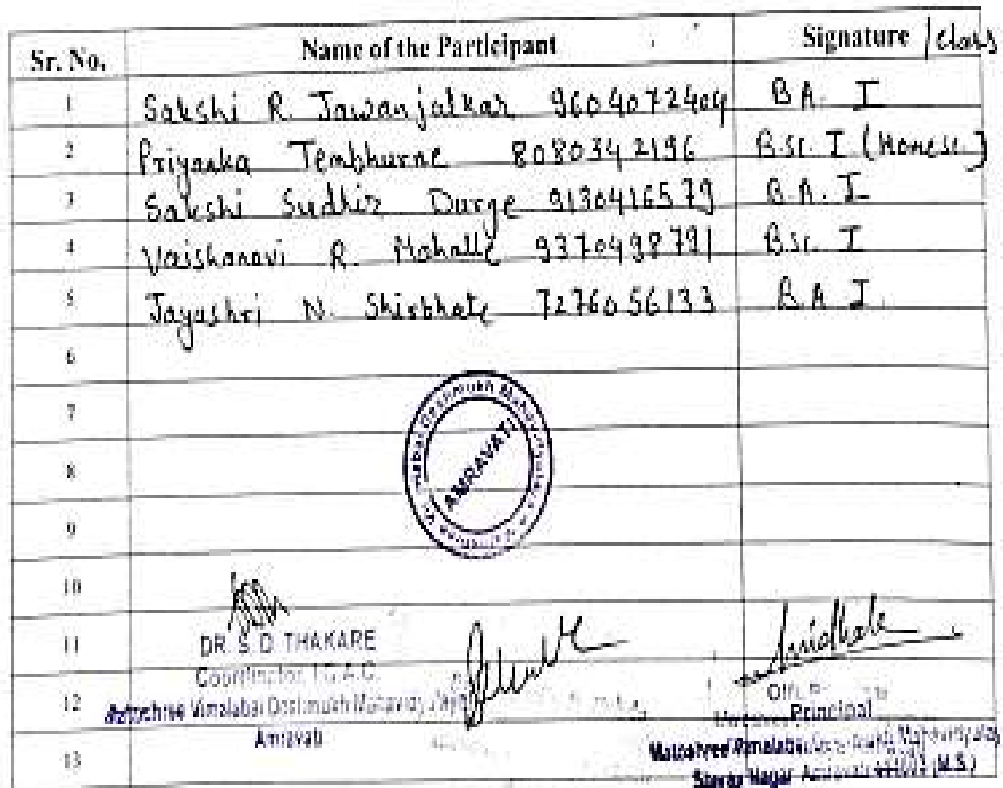 Sr. No. Name of the Participant Signature / Class
1 Sakshi R. Jawanjalkar 9604072404 B.A. I
2 Priyanka Tembhurne 8080342196 B.Sc. I
3 Sakshi Sudhir Durge 9130416579 B.A. I
4 Vaishanavi R. Mohalle 9370498791 B.Sc. I
5 Jayashri N. Shirbhate 7276056133 B.A I.
6
7
8
9
10
11
12
13
AMRAVATI
DR. S. D. THAKARE
Coordinator I.Q.A.C.
Vimalabai Deshmukh Mahavidyalaya
Amravati
Principal
Nagar Amravati (M.S.)